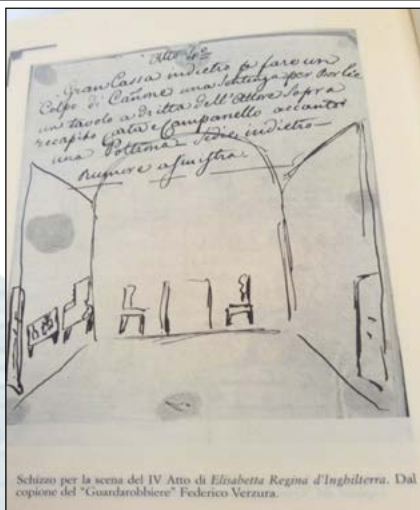 Atto 4to
Gran Cassa indietro p fare un
Colpo di Canone una sentenza per Borlie
un tavolo a dritta dell'Attore sopra
recapito carta e Campanello accanto
una Poltrona Sedie indietro—
Rumore a sinistra.
Schizzo per la scena del IV Atto di Elisabetta Regina d'Inghilterra. Dal
copione del "Guardarobbiere" Federico Verzura.